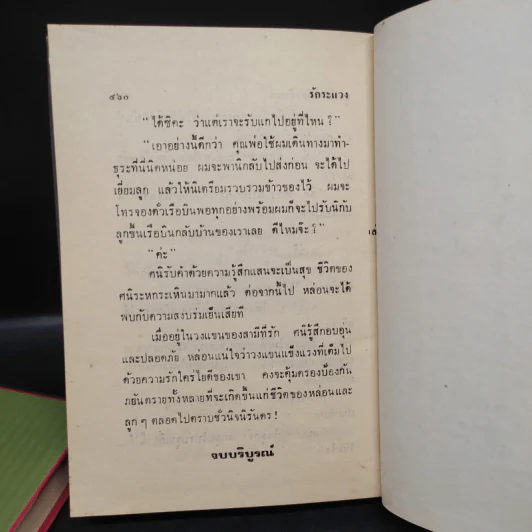 ๔๖๐ รักระแวง
“ได้ซิคะ ว่าแต่เราจะรับแกไปอยู่ที่ไหน ?”
“เอาอย่างนี้ดีกว่า คุณพ่อใช้ผมเดินทางมาทำ-
ธุระที่นี่นิดหน่อย ผมจะพานิกลับไปส่งก่อน จะได้ไป
เยี่ยมลูก แล้วให้นิเตรียมรวบรวมข้าวของไว้ ผมจะ
โทรจองตั๋วเรือบินพอทุกอย่างพร้อมผมก็จะไปรับนิกับ
ลูกขึ้นเรือบินกลับบ้านของเราเลย ดีไหมจ๊ะ ?”
“ค่ะ”
ศนิรับคำด้วยความรู้สึกแสนจะเป็นสุข ชีวิตของ
ศนิระหกระเหินมามากแล้ว ต่อจากนี้ไป หล่อนจะได้
พบกับความสงบร่มเย็นเสียที
เมื่ออยู่ในวงแขนของสามีที่รัก ศนิรู้สึกอบอุ่น
และปลอดภัย หล่อนแน่ใจว่าวงแขนแข็งแรงที่เต็มไป
ด้วยความรักใคร่ใยดีของเขา คงจะคุ้มครองป้องกัน
ภยันตรายทั้งหลายที่จะเกิดขึ้นแก่ชีวิตของหล่อนและ
ลูก ๆ ตลอดไปตราบชั่วนิจนิรันดร !
จบบริบูรณ์